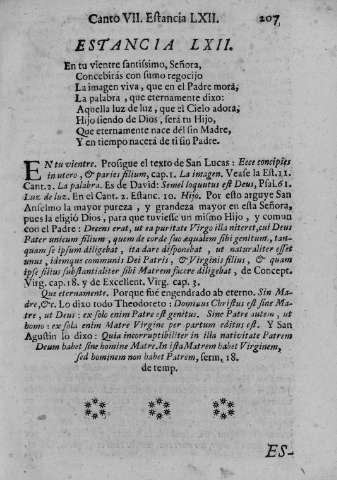 Canto VII. Estancia LXII. 207
ESTANCIA LXII.
En tu vientre santissimo, Señora,
Concebirás con sumo regocijo
La imagen viva, que en el Padre mora,
La palabra, que eternamente dixo:
Aquella luz de luz, que el Cielo adora,
Hijo siendo de Dios, será tu Hijo,
Que eternamente nace dél sin Madre,
Y en tiempo nacerá de ti sin Padre.
EN tu vientre. Prosigue el texto de San Lucas: Ecce concipies
in utero, & paries filium, cap. 1. La imagen. Vease la Est. 11.
Cant. 2. La palabra. Es de David: Semel loquutus est Deus, Psal. 61.
Luz de luz. En el Cant. 2. Estanc. 10. Hijo. Por esto arguye San
Anselmo la mayor pureza, y grandeza mayor en esta Señora,
pues la eligió Dios, para que tuviesse un mismo Hijo, y comun
con el Padre: Decens erat, ut ea puritate Virgo illa niteret, cui Deus
Pater unicum filium, quem de corde suo æqualem sibi genitum, tan-
quam se ipsum diligebat, ita dare disponebat, ut naturaliter esset
unus, idemque communis Dei Patris, & Virginis filius, & quam
ipse filius substantialiter sibi Matrem facere diligebat, de Concept.
Virg. cap. 18. y de Excellent. Virg. cap. 3.
Que eternamente. Porque fue engendrado ab eterno. Sin Ma-
dre, &c. Lo dixo todo Theodoreto: Dominus Christus est sine Ma-
tre, ut Deus: ex solo enim Patre est genitus. Sine Patre autem, ut
homo: ex sola enim Matre Virgine per partum editus est. Y San
Agustin lo dixo: Quia incorruptibiliter in illa nativitate Patrem
Deum habet sine homine Matre. In ista Matrem habet Virginem,
sed hominem non habet Patrem, serm. 18.
de temp.
ES-